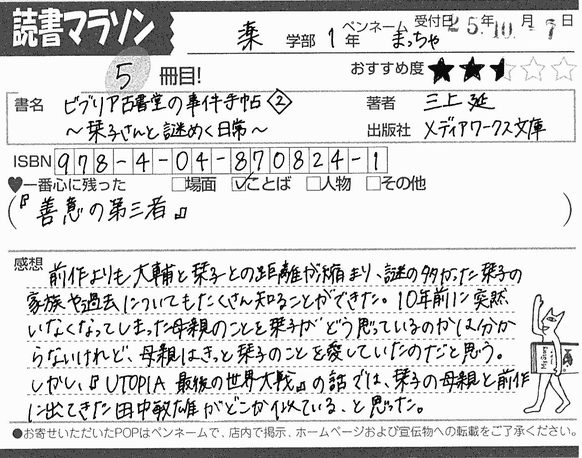 読書マラソン
薬 学部 1 年 ペンネーム まっちゃ 受付日 25年10月-7日
5 冊目! おすすめ度 ★★☆☆☆
書名 ビブリア古書堂の事件手帖② 著者 三上 延
〜栞子さんと謎めく日常〜 出版社 メディアワークス文庫
ISBN 978-4-04-870824-1
♥一番心に残った □場面 ☑ことば □人物 □その他
(『善意の第三者』)
感想 前作よりも大輔と栞子との距離が縮まり、謎の多かった栞子の
家族や過去についてもたくさん知ることができた。10年前に突然
いなくなってしまった母親のことを栞子がどう思っているのかは分か
らないけれど、母親はきっと栞子のことを愛していたのだと思う。
しかし、『UTOPIA 最後の世界大戦』の話では、栞子の母親と前作
に出てきた田中敏雄がどこか似ている、と思った。
●お寄せいただいたPOPはペンネームで、店内で掲示、ホームページおよび宣伝物への転載をご了承ください。